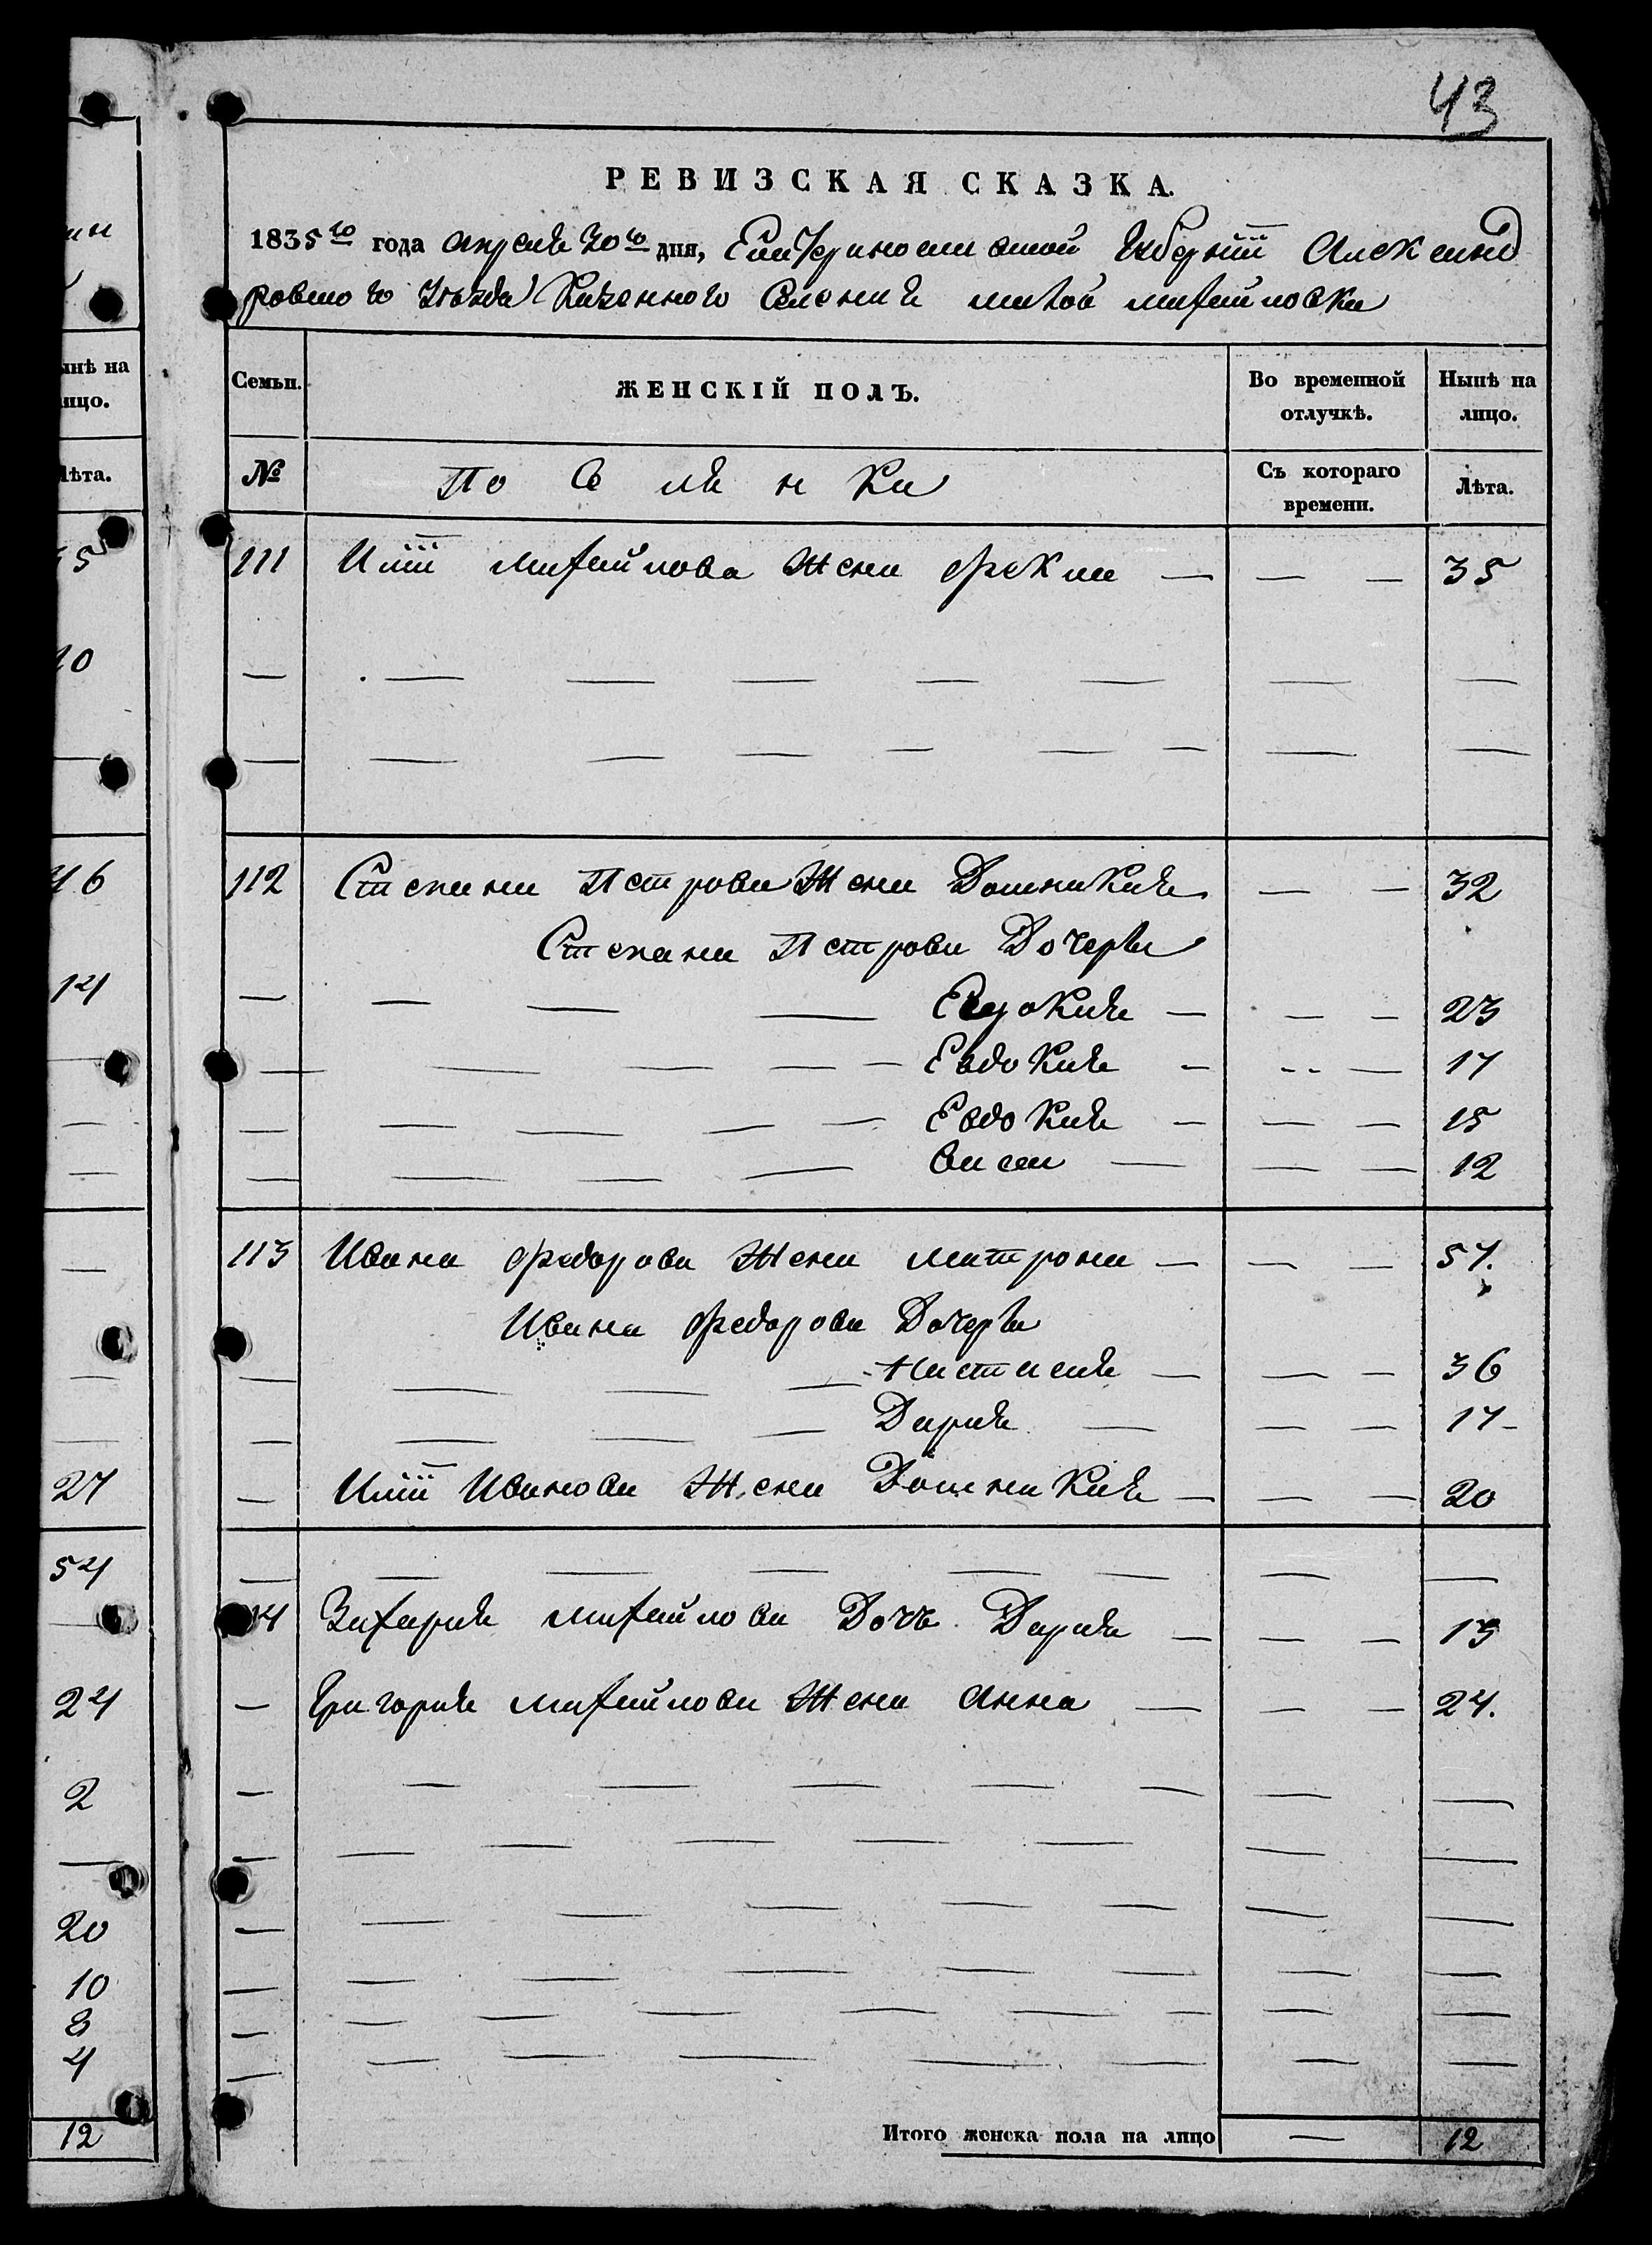 43
РЕВИЗСКАЯ СКАЗКА.
1835го года апреля 30го дня, Екатеринославской Губернiи Александ
ровского Уезда Казенного Селения малой михайловки
Семьи. ЖЕНСКІЙ ПОЛЪ. Во временной отлучкѣ. Нынѣ на лицо.
№ Поселянки Съ котораго времени. Лѣта.
111 Илiи михайлова жена Фекла — — — 35
112 Степана Петрова жена Домникия — — 32
Степана Петрова дочеры
— — — — — — — 23
— — — — — Евдокия — — — 17
— — — — — Евдокия — — — 15
— — — — Васса — — — 12
113 Ивана Федорова жена матрона — — — 57.
Ивана Федорова дочеры
— — — — Настасия — — — 36
— — — — Дария — — — 17
— Илiи Иванова жена Домникия — — — 20
Захария михайлова дочь Дария — — — 13
— Григория михайлова жена Анна — — — 24.
Итого женска пола на лицо — 12
ынѣ на
лицо.
Лѣта.
35
46
14
27
54
24
2
20
10
8
4
12